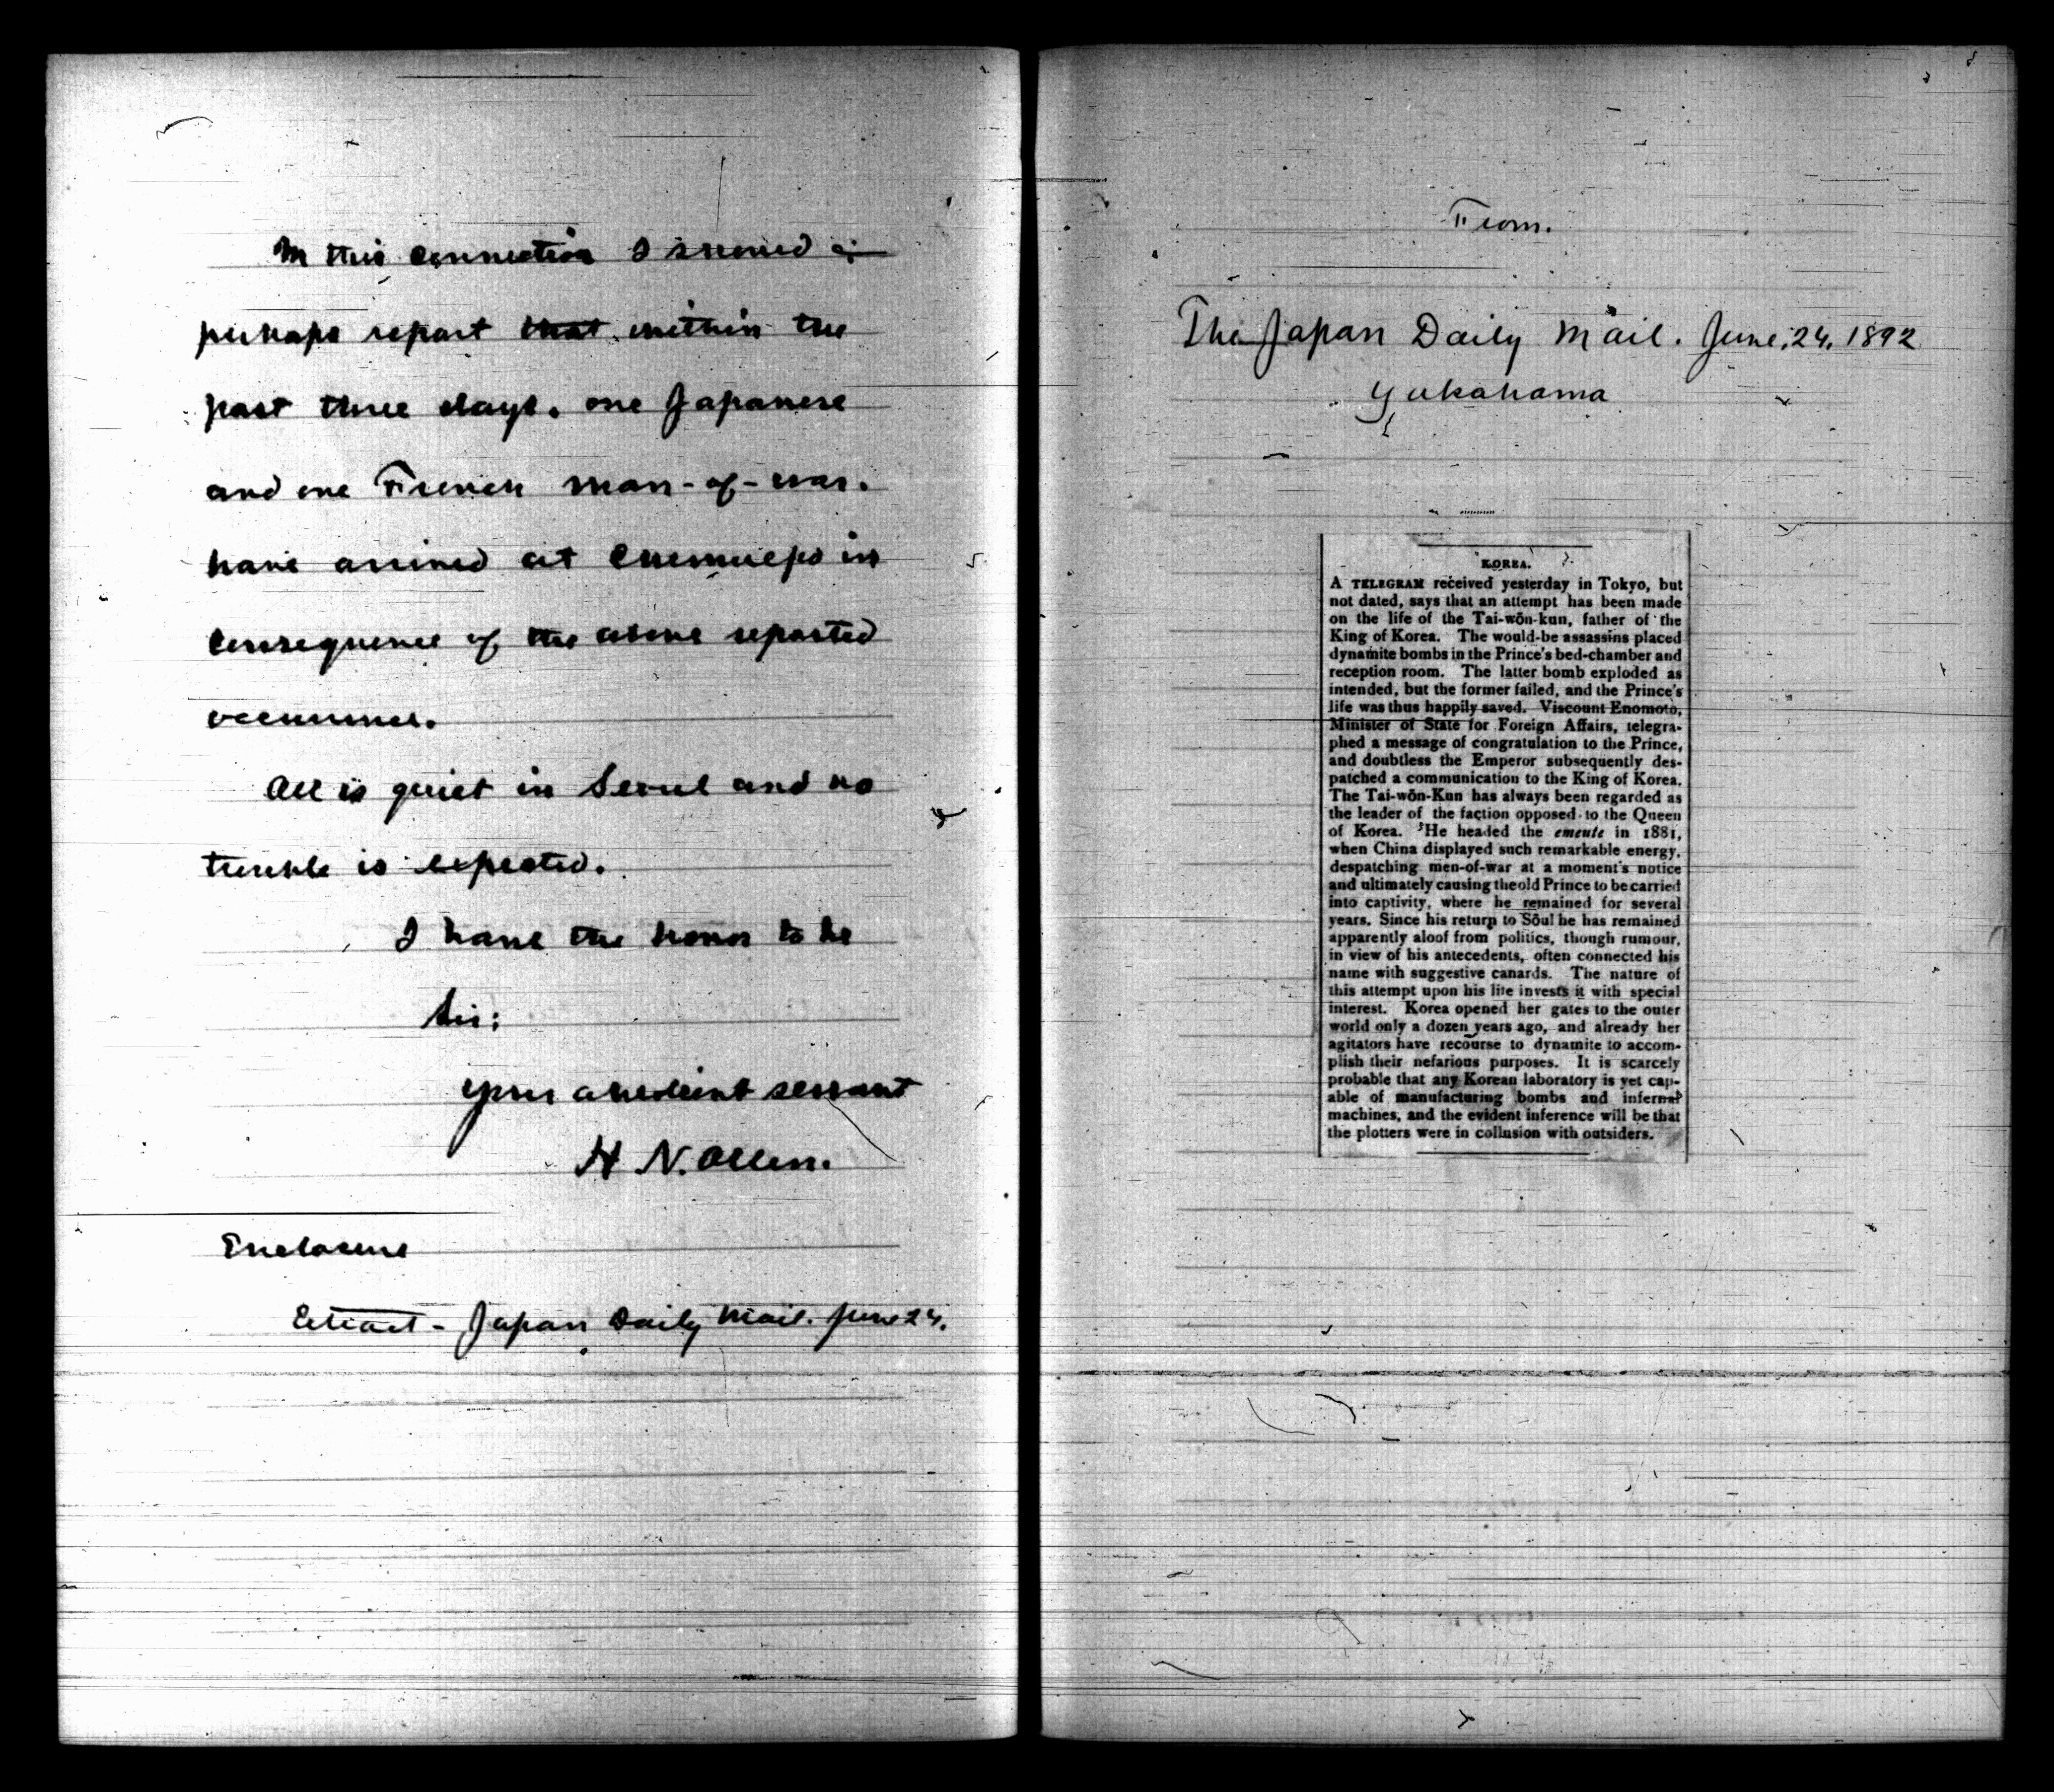 In this connection I should
perhaps report that within the
past three days, one Japanese
and one French man-of-war.
have arrived at Chemulpo in
consequence of the above reported
occurrence.
All is quiet in Seoul and no
trouble is expected.
I have the honor to be
Sir:
your obedient servant
H N. Allen.
Enclosure
Extract - Japan Daily Mail. June 24.
From.
The Japan Daily Mail. June, 24, 1892
Yokahama
KOREA.
A TELEGRAM received yesterday in Tokyo, but
not dated, says that an attempt has been made
on the life of the Tai-wŏn-kun, father of the
King of Korea. The would-be assassins placed
dynamite bombs in the Prince's bed-chamber and
reception room. The latter bomb exploded as
intended, but the former failed, and the Prince's
life was thus happily saved. Viscount Enomoto,
Minister of State for Foreign Affairs, telegra-
phed a message of congratulation to the Prince,
and doubtless the Emperor subsequently des-
patched a communication to the King of Korea.
The Tai-wŏn-Kun has always been regarded as
the leader of the faction opposed to the Queen
of Korea. He headed the emeute in 1881,
when China displayed such remarkable energy,
despatching men-of-war at a moment's notice
and ultimately causing the old Prince to be carried
into captivity, where he remained for several
years. Since his return to Sŏul he has remained
apparently aloof from politics, though rumour,
in view of his antecedents, often connected his
name with suggestive canards. The nature of
this attempt upon his life invests it with special
interest. Korea opened her gates to the outer
world only a dozen years ago, and already her
agitators have recourse to dynamite to accom-
plish their nefarious purposes. It is scarcely
probable that any Korean laboratory is yet cap-
able of manufacturing bombs and infernal
machines, and the evident inference will be that
the plotters were in collusion with outsiders.